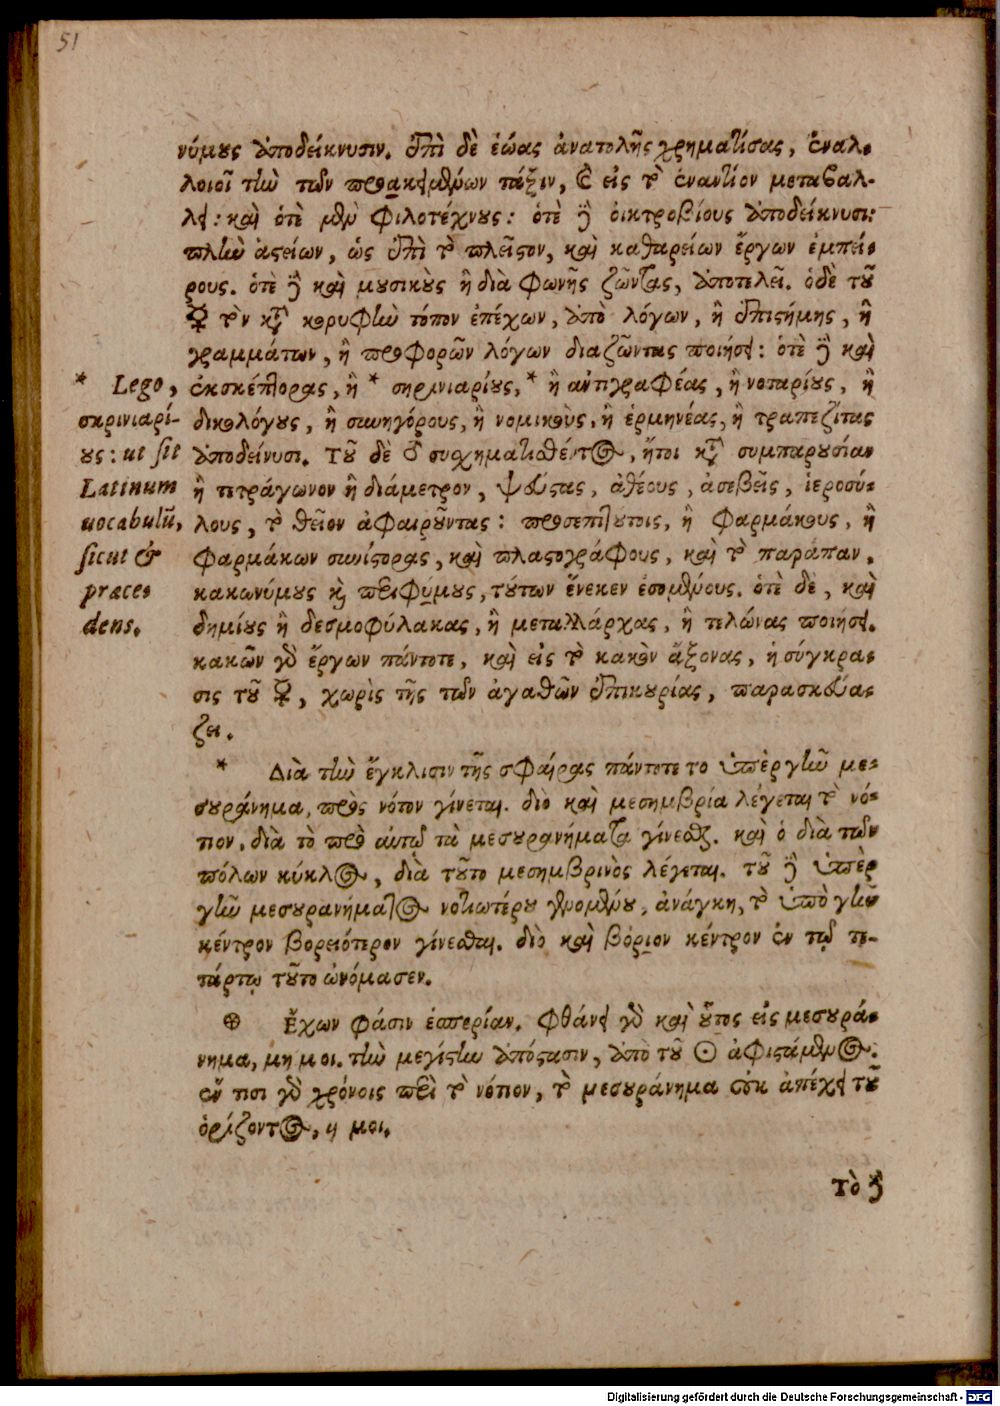 51
νύμους ἀποδείκνυσιν. ἐπὶ δὲ ἑώας ἀνατολῆς χρηματίσας, ἐναλ-
λοιοῖ τὴν τῶν προακειμένων τάξιν, καὶ εἰς τὸ ἐναντίον μεταβαλ-
λει: καὶ ὁτὲ μὲν φιλοτέχνους: ὁτὲ δὲ οἰκτροβίους ἀποδείκνυσι:
πλὴν ἀστείων, ὡς ἐπὶ τὸ πλεῖστον, καὶ καθαρείων ἔργων ἐμπεί-
ρους. ὁτὲ δὲ καὶ μουσικοὺς ἢ διὰ φωνῆς ζῶντας, ἀποτελεῖ. ὁδὲ τοῦ
☿ τὸν κατὰ κορυφὴν τόπον ἐπέχων, ἀπὸ λόγων, ἢ ἐπιστήμης, ἢ
γραμμάτων, ἢ προφορῶν λόγων διαζῶντας ποιήσει: ὁτὲ δὲ καὶ
ἐκσκέπτορας, ἢ * σηρινιαρίους, * ἢ ἀντιγραφέας, ἢ νοταρίους, ἢ
δικολόγους, ἢ συνηγόρους, ἢ νομικοὺς, ἢ ἑρμηνέας, ἢ τραπεζίτας
ἀποδείνυσι. Τοῦ δὲ ♂ συσχηματισθέντος, ἤτοι κατὰ συμπαρουσίαν
ἢ τετράγωνον ἢ διάμετρον, ψεύστας, ἀθέους, ἀσεβεῖς, ἱεροσύ-
λους, τὸ θεῖον ἀφαιροῦντας: προσεπιτούτοις, ἢ φαρμάκους, ἢ
φαρμάκων συνίστορας, καὶ πλαστογράφους, καὶ τὸ παράπαν,
κακωνύμους καὶ περιφύμους, τούτων ἕνεκεν ἐσομένους. ὁτὲ δὲ, καὶ
δημίους ἢ δεσμοφύλακας, ἢ μεταλλάρχας, ἢ τελώνας ποιήσει.
κακῶν γὰρ ἔργων πάντοτε, καὶ εἰς τὸ κακὸν ἄξονας, ἡ σύγκρα-
σις τοῦ ☿, χωρὶς τῆς τῶν ἀγαθῶν ἐπικουρίας, παρασκευά-
ζει.
* Lego,
σκρινιαρί-
ους: ut sit
Latinum
uocabulū,
sicut &
præce-
dens.
* Διὰ τὴν ἔγκλισιν τῆς σφαίρας πάντοτε το ὑπὲρ γῆν με-
σουράνημα, πρὸς νότον γίνεται. διὸ καὶ μεσημβρία λέγεται τὸ νό-
τιον, διὰ τὸ πρὸ αὐτῷ τὰ μεσουρανήματα γίνεσθαι. καὶ ὁ διὰ τῶν
πόλων κύκλος, διὰ τοῦτο μεσημβρινὸς λέγεται. τοῦ δὲ ὑπὲρ
γῆν μεσουρανήματος νοτιωτέρου γενομένου, ἀνάγκη, τὸ ὑπὸ γῆν
κέντρον βορειότερον γίνεσθαι. διὸ καὶ βόριον κέντρον ἐν τῷ τε-
τάρτῳ τοῦτο ὠνόμασεν.
⊕ Ἔχων φάσιν ἑσπερίαν. Φθάνει γὰρ καὶ οὗτος εἰς μεσουρά-
νημα, μη μοι. τὴν μεγίστην ἀπόστασιν, ἀπὸ τοῦ ☉ ἀφιστάμενος.
ἔν τισι γὰρ χρόνοις περὶ τὸ νότιον, τὸ μεσουράνημα οὐκ ἀπέχει τοῦ
ὁρίζοντος, η μοι.
Τὸ δὲ
Digitalisierung gefördert durch die Deutsche Forschungsgemeinschaft - DFG